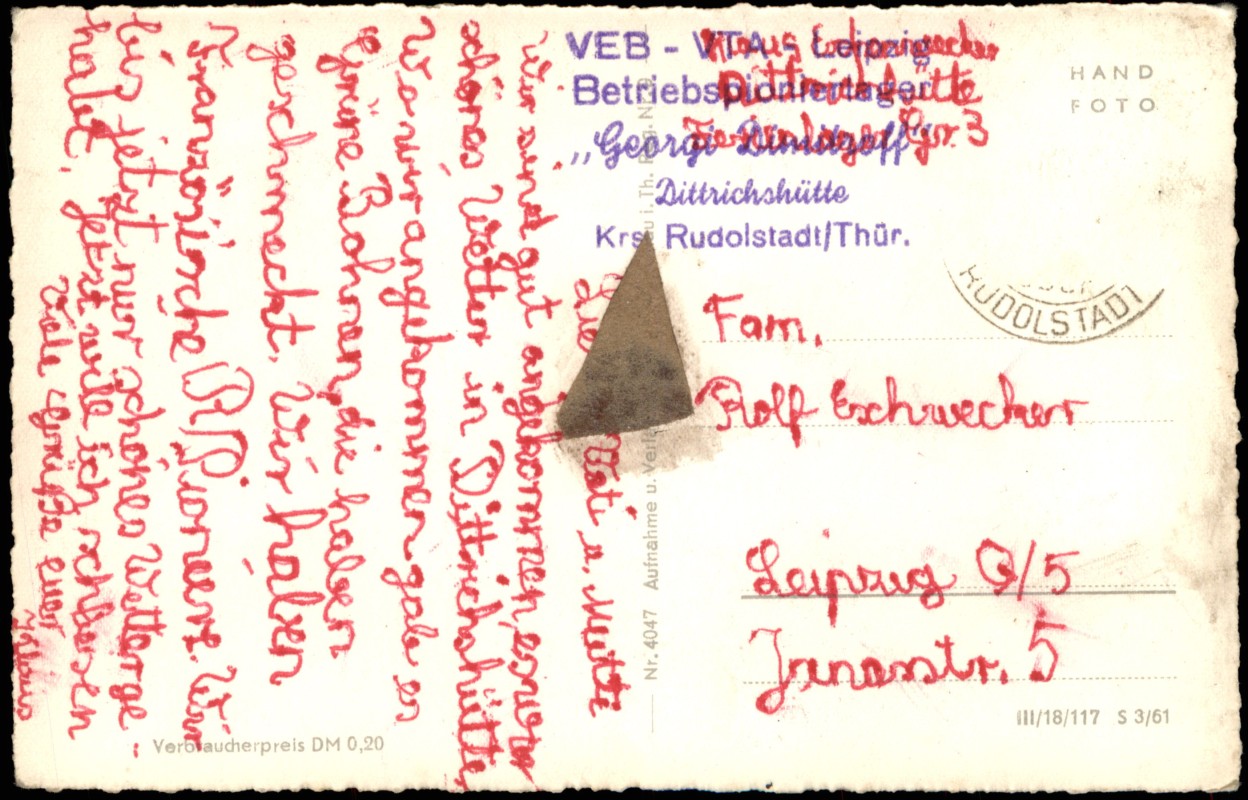 VEB - VTA - Leipzig
Betriebspionierlager
„Georgi Dimitroff"
Dittrichshütte
Krs. Rudolstadt/Thür.
Klaus Eschwecker
Dittrichshütte
Ferienlager Gr. 3
HAND
FOTO
RUDOLSTADT
Fam.
Rolf Eschwecker
Leipzug O/5
Jonasstr. 5
III/18/117 S 3/61
Nr. 4047 Aufnahme u. Verl
Verbraucherpreis DM 0,20
Lie Vati u. Mutti
wir sind gut angekommen, es war
schönes Wetter in Dittrichshütte,
Wo wir angekommen gab es
grüne Bohnen, die haben
geschmeckt. Wir haben
Französische Pioniere. Wir
bis jetzt nur schönes Wetter ge-
habt. Jetzt will ich schliesen
Viele Grüße euer
Klaus